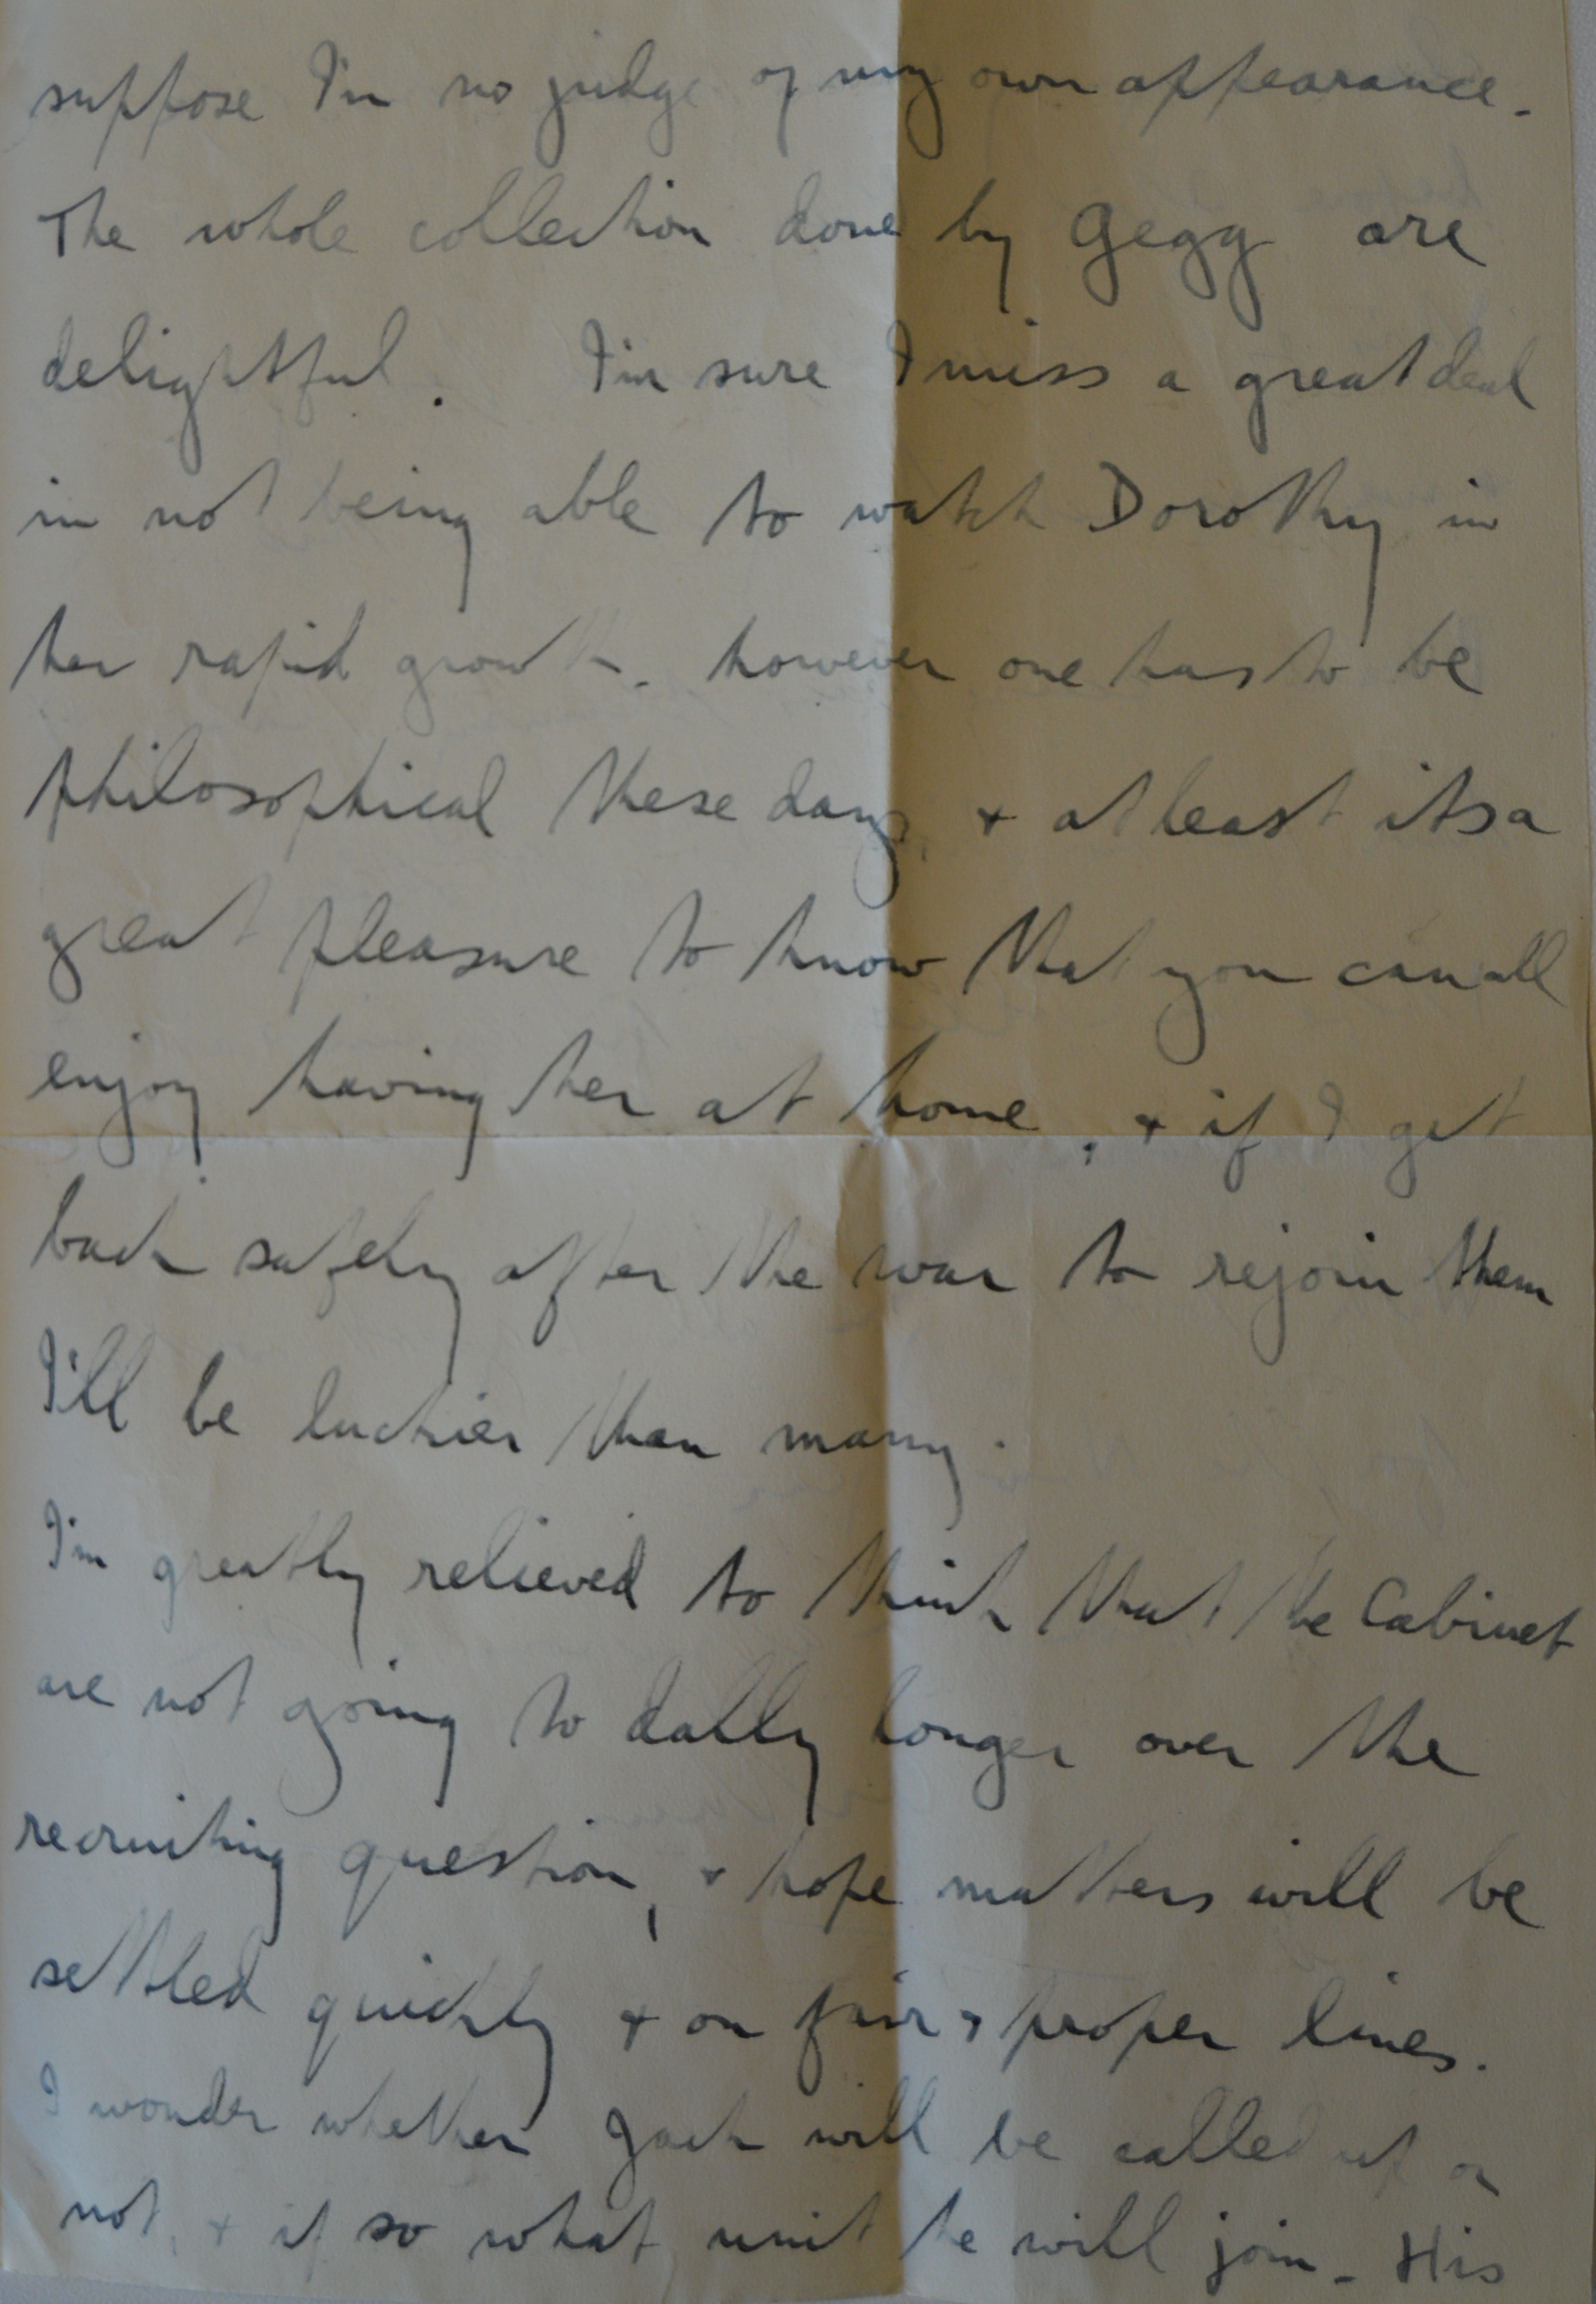 suppose I'm no judge of my own appearance.
The whole collection done by Gegg are
delightful. I'm sure I miss a great deal
in not being able to watch Dorothy in
her rapid growth. however one has to be
philosophical these days, + at least its a
great pleasure to know that you can all
enjoy having her at home, + if I get
back safely after the war to rejoin them
I'll be luckier than many.
I'm greatly relieved to think that the Cabinet
are not going to dally longer over the
recruiting question, + hope matters will be
settled quickly + on fair + proper lines.
I wonder whether Jack will be called up or
not, + if so what unit he will join - His